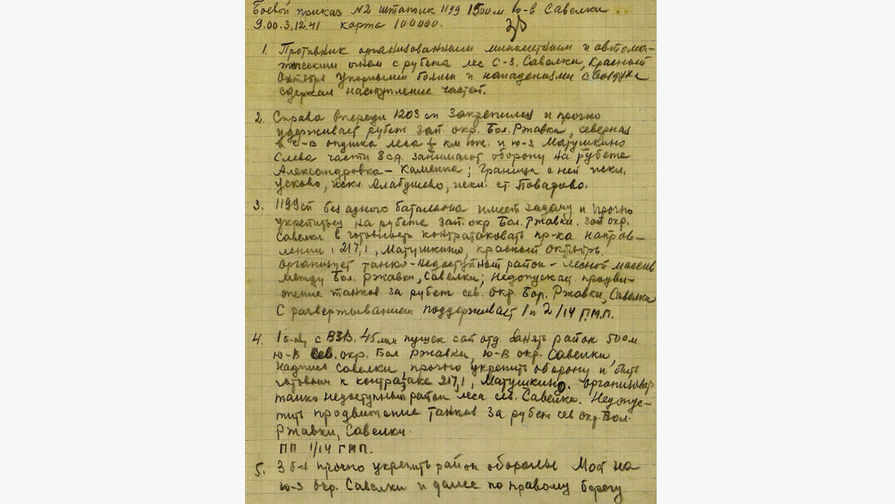 Боевой приказ №2 штаполк 1199 1500м ю-в Савелки
9.00.3.12.41 карта 100000.
1. Противник организованным минометным и автома-
тическим огнем с рубежа лес С-З. Савелки, Красный
Октябрь упорными боями и нападениями с воздуха
сдержал наступление частей.
2. Справа впереди 1203 сп закрепился и прочно
удерживает рубеж зап. окр. Бол. Ржавки, северная
и С-В опушка леса 1 км юж. и ю-з Матушкино
Слева части 8сд. занимают оборону на рубеже
Александровка – Каменка; граница с ней искл.
Усково, искл. Алабушево, искл. ст Поварово.
3. 1199 сп без одного батальона имеет задачу и прочно
укрепиться на рубеже зап. окр Бол. Ржавки. зап окр.
Савелки в готовности контратаковать пр-ка направ-
лении: 217,1, Матушкино, Красный Октябрь.
Организует танко-недоступный район – лесной массив
между Бол. Ржавки, Савелки; Недопускац. продви-
жение танков за рубеж сев. окр. Бол. Ржавки, Савелки
С развертыванием поддерживает 1 и 2/14 Г.М.П.
4. 1 б-н, с ВЗВ. 45мм пушек сап отд. Занять район 500м
ю-В сев. окр. Бол Ржавки, ю-В окр. Савелки,
Савелки, прочно укрепить оборону и быть
готовым к контратаке 217,1, Матушкино. организовать
танко недоступный район леса сев. Савелки. Недопус-
тить продвижение танков за рубеж сев окр. Бол.
Ржавки, Савелки.
ПП 1/14 ГМП.
5. 3 б-н прочно укрепить район обороны Мост на
ю-з окр. Савелки и далее по правому берегу